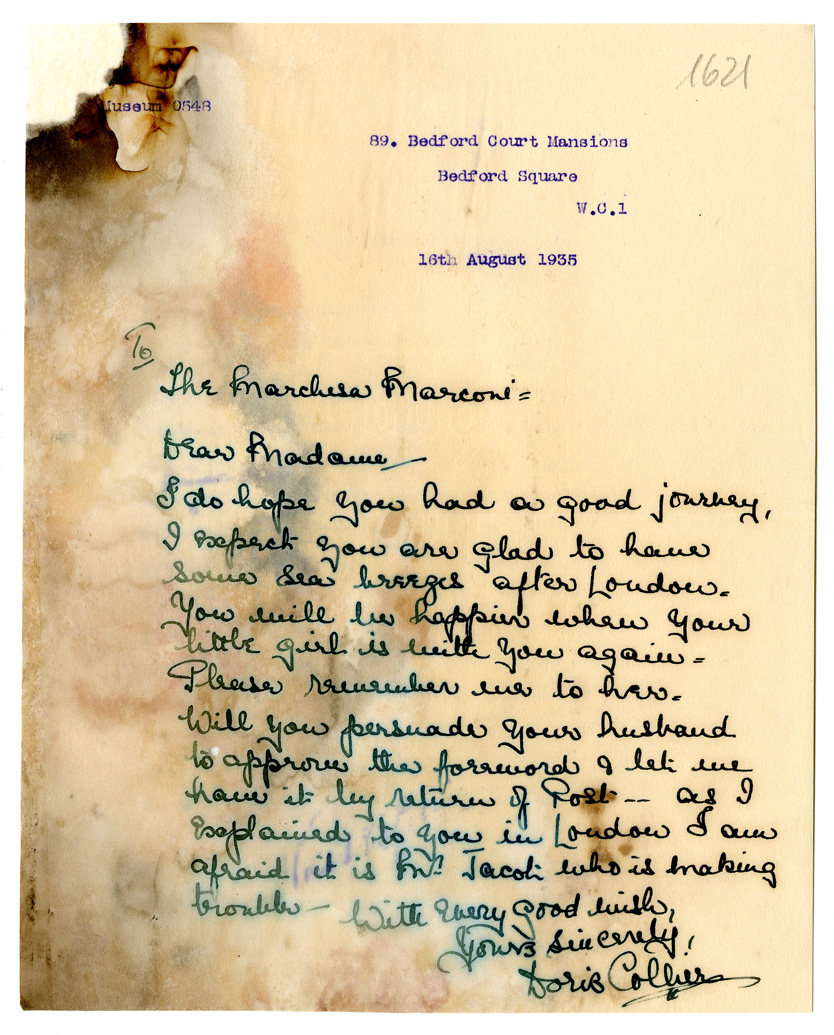 1621
Museum 0548
89. Bedford Court Mansions
Bedford Square
W.C.1
16th August 1935
To
The Marchesa Marconi =
Dear Madame —
I do hope you had a good journey,
I expect you are glad to have
some sea breezes after London.
You will be happier when your
little girl is with you again =
Please remember me to her.
Will you persuade your husband
to approve the foreword & let me
have it by return of Post -- as I
explained to you in London I am
afraid it is Mr. Jacot who is making
trouble — With every good wish,
Yours sincerely,
Doris Collier